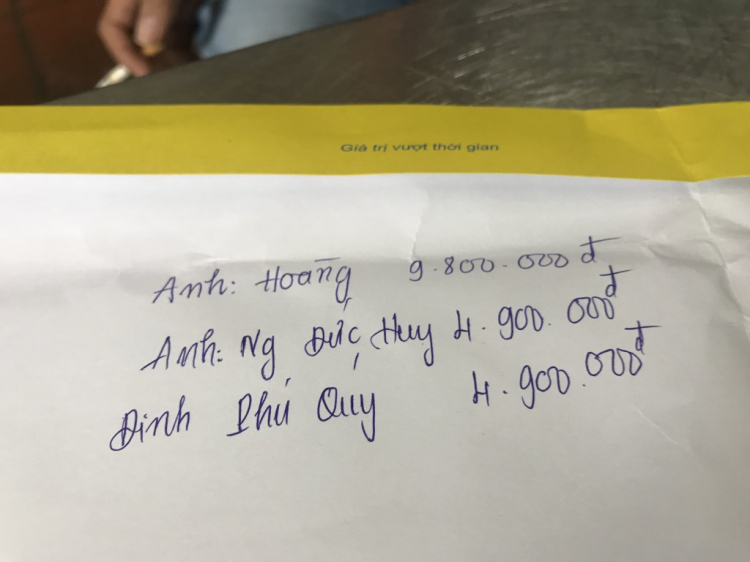 Giá trị vượt thời gian
Anh: Hoàng 9.800.000đ
Anh: Ng Đức Huy 4.900.000đ
Đinh Phú Quý 4.900.000đ